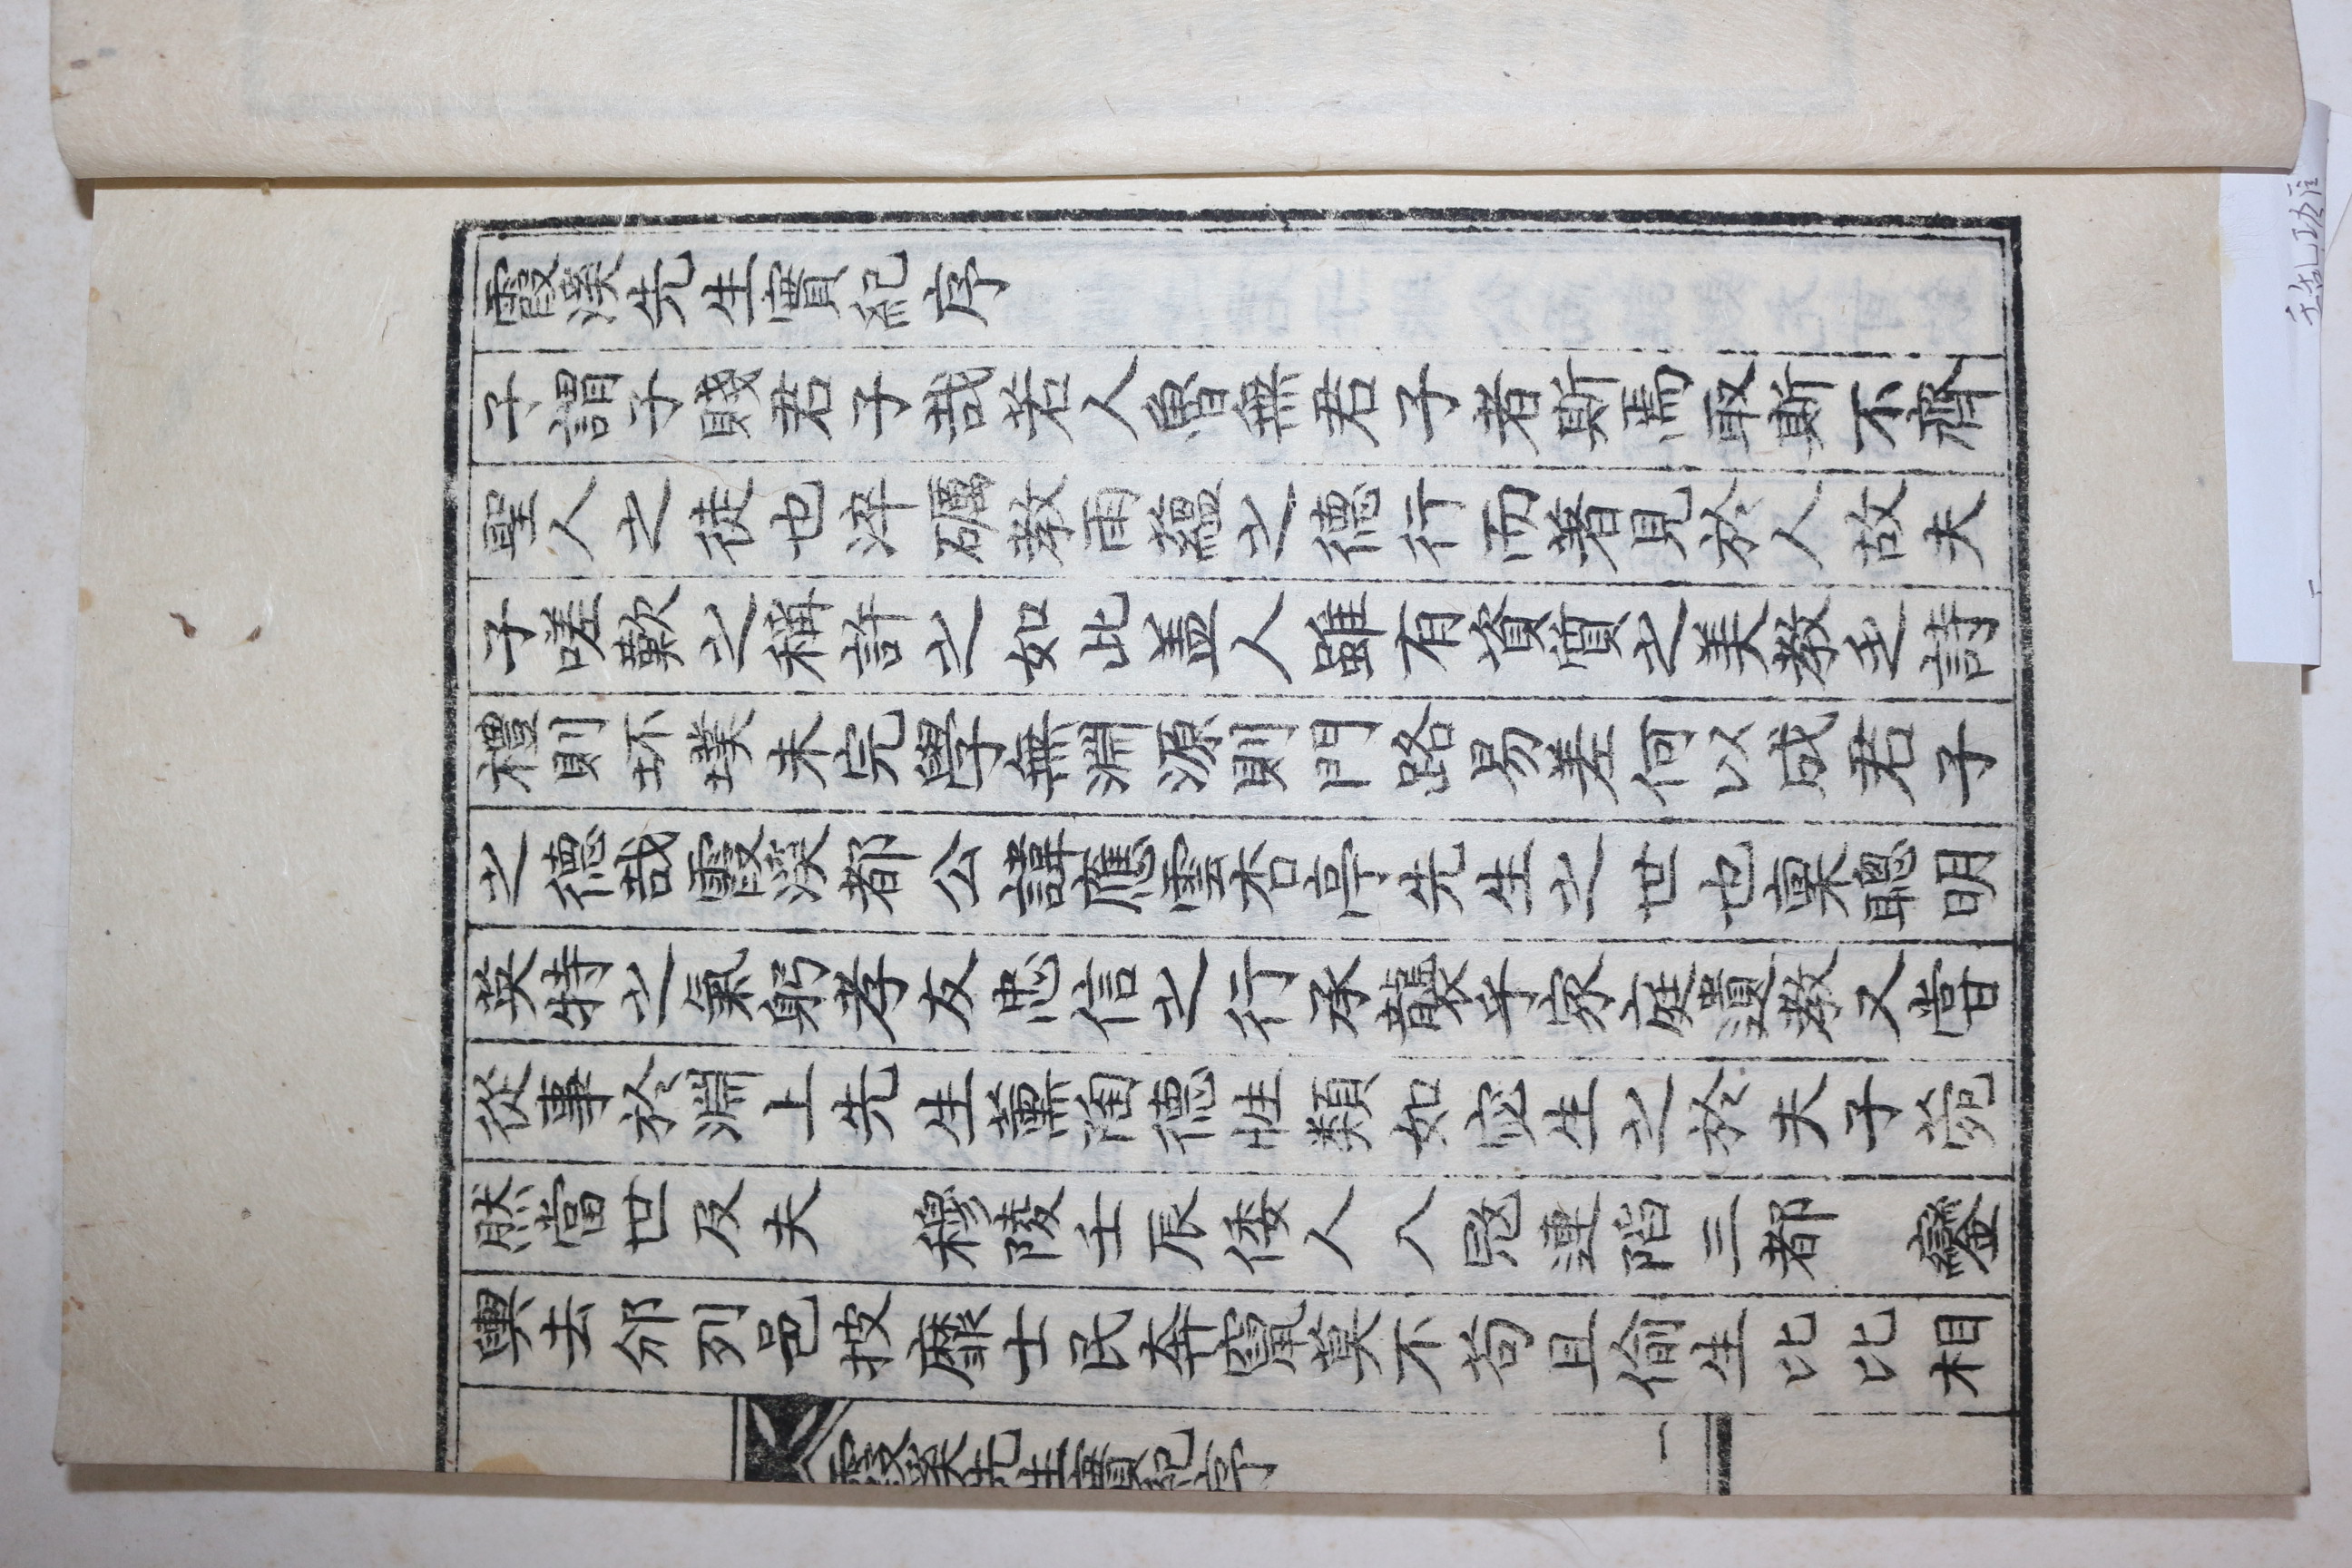 霞溪先生實紀序
子謂子賤君子哉若人魯無君子者斯焉取斯不齊
聖人之徒也淬礪敎雨蘊之德行而著見於人故夫
子嗟歎之稱許之如此盖人雖有資質之美敎乏詩
禮則坏璞未完學無淵源則門路易差何以成君子
之德哉霞溪都公諱應雲杏亭先生之世也稟聰明
英特之氣躬孝友忠信之行承襲乎家庭遺敎又嘗
從事於淵上先生薰陶德性類如宓生之於夫子菀
然當世及夫 穆陵壬辰倭人入寇連陷三都 鑾
輿去邠列邑披靡士民奔竄莫不苟且偸生比比相
霞溪先生實紀序 一